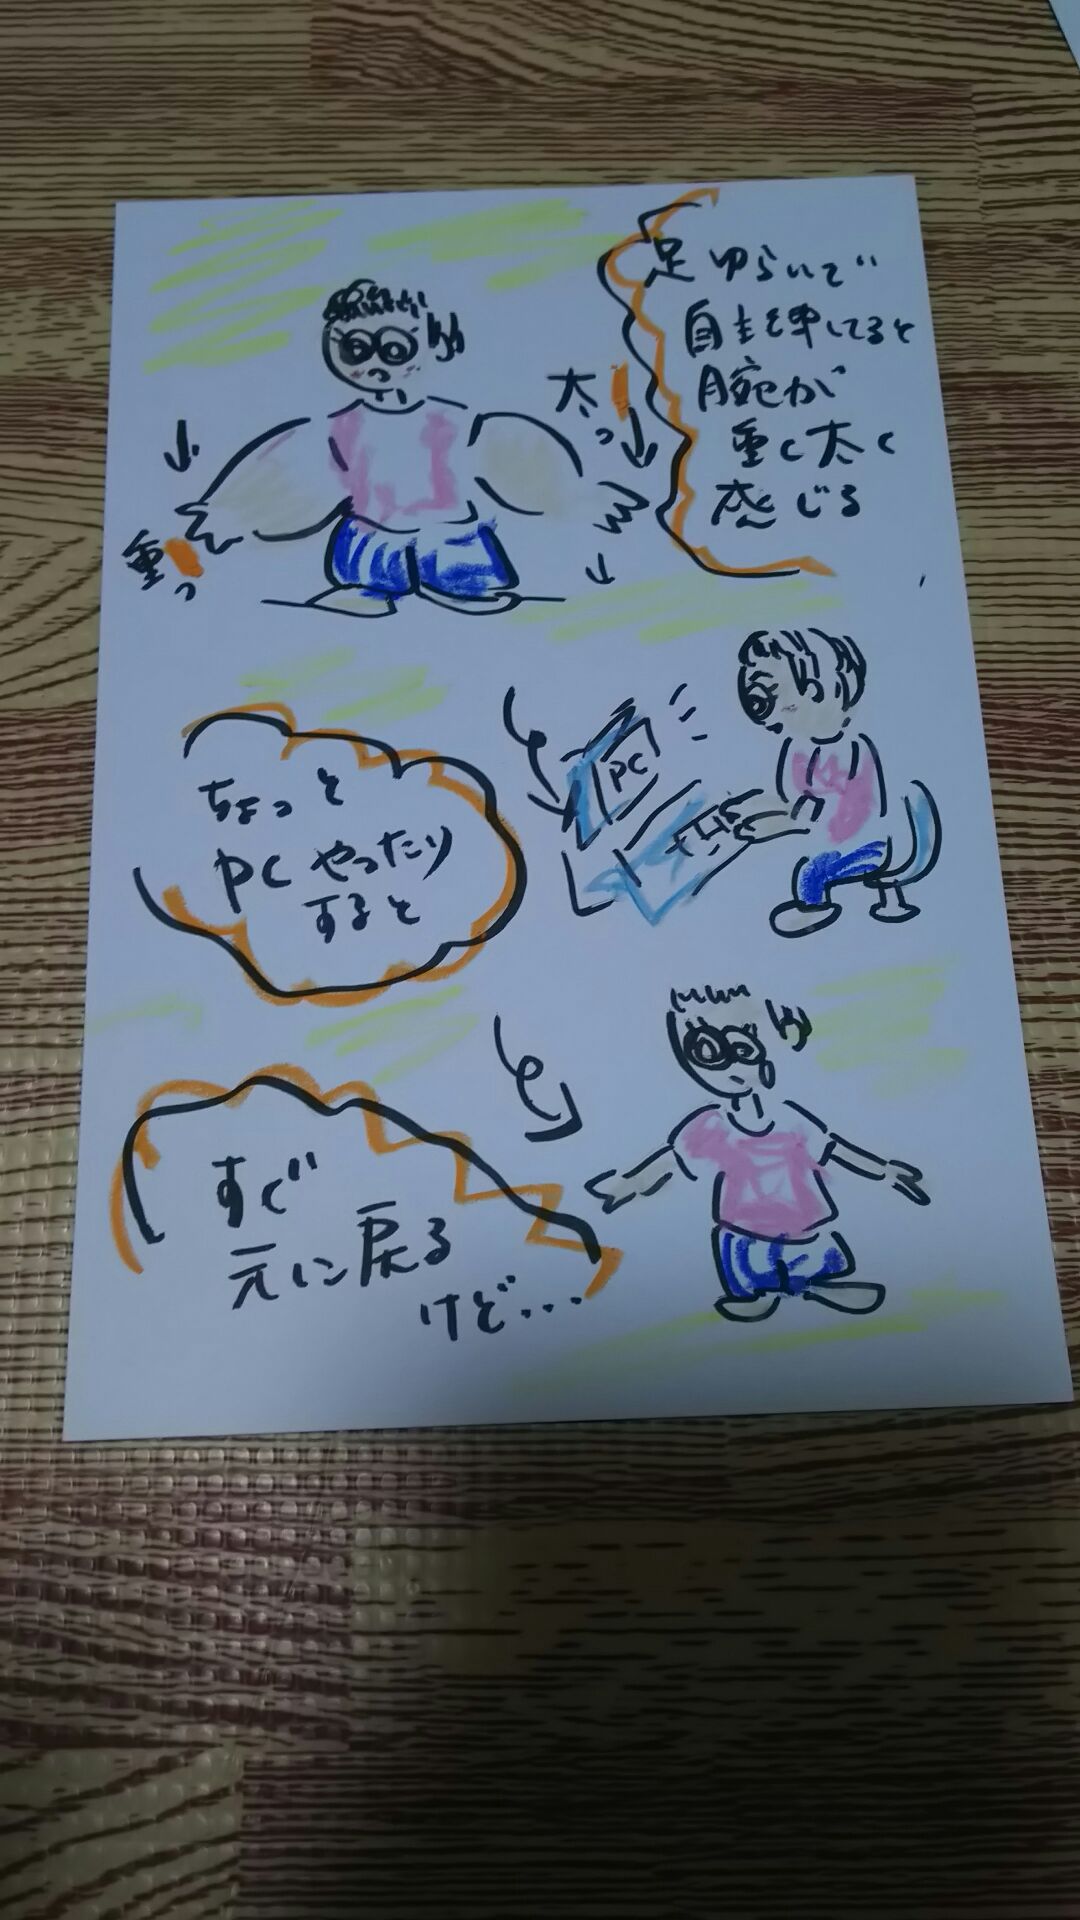 足ゆらいで
自主を申してると
腕が
重く太く
感じる
太っ
重っ
ちょっと
PCやったり
すると
PC
すぐ
元に戻る
けど...